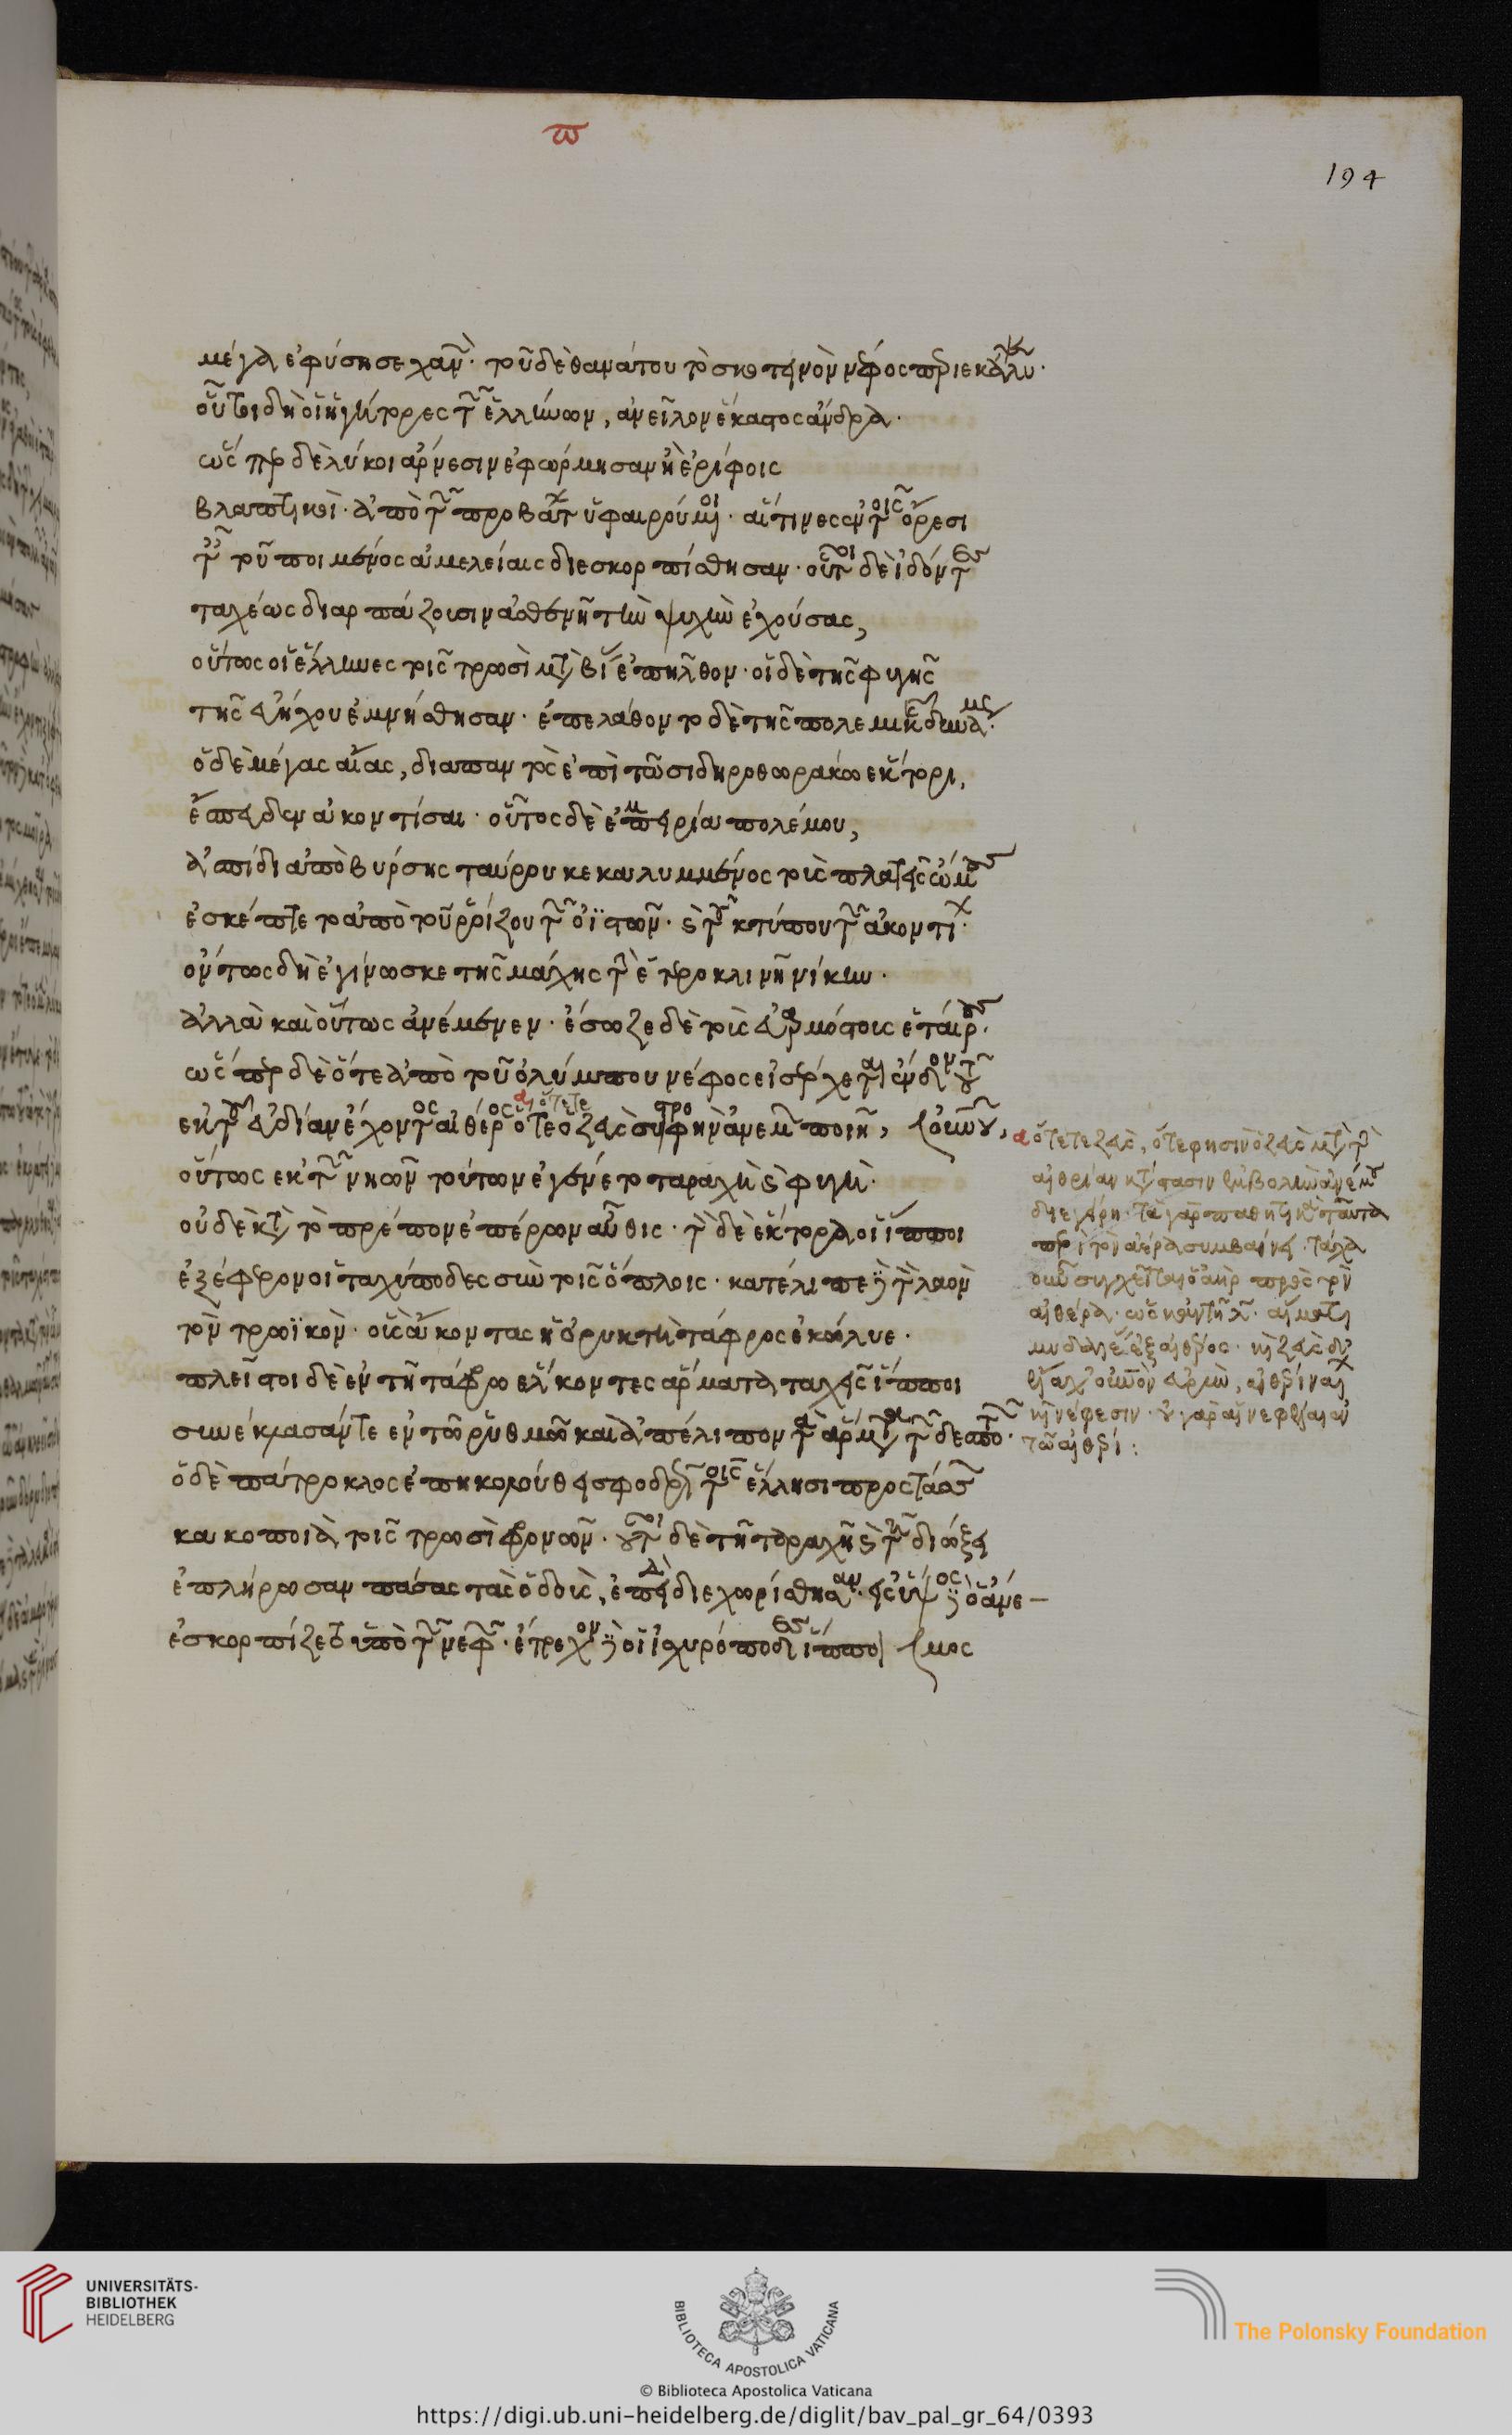 ω
194
μέγα ἐφύσησε χανών· τοῦ δὲ θανάτου τὸ σκοτεινὸν νέφος περιεκάλυψ·
οὗτοι δὴ οἱ ἡγήτορες τῶν ἑλλήνων, ἀνεῖλον ἕκαστος ἄνδρα·
ὥσπερ δὲ λύκοι ἀρνέσιν ἐφώρμησαν ἢ ἐρίφοις
βλαπτικοὶ· ἀπὸ τῶν προβάτων ὑφαιρούμενοι· αἵτινες ἐν τοῖς ὄρεσι
τοῦ ποιμένος ἀμελείαις διεσκορπίσθησαν· οὗτοι δὲ ἰδόντες
ταχέως διαρπάζουσιν ἀσθενῆ τὴν ψυχὴν ἐχούσας,
οὕτως οἱ ἕλληνες τοῖς τρωσὶ μετὰ βίας ἐπῆλθον· οἱ δὲ τῆς φυγῆς
τῆς ἐμνήσθησαν· ἐπελάθοντο δὲ τῆς πολεμικῆς δυνάμεως·
ὁ δὲ μέγας αἴας, διαπαντὸς ἐπὶ τῶ σιδηροθωράκω ἕκτορι,
ἔσπευδεν ἀκοντίσαι· οὗτος δὲ ἐμπειρία πολέμου,
ἀσπίδι ἀπὸ βύρσης ταύρου κεκαλυμμένος τοὺς πλατεῖς ὤμους
ἐσκέπτετο ἀπὸ τοῦ ῥοίζου τῶν ὀϊστῶν· καὶ τοῦ κτύπου τῶν ἀκοντίων·
ὄντως δὴ ἐγίνωσκε τῆς μάχης τὴν ἑτεροκλινῆ νίκην·
ἀλλὰ καὶ οὕτως ἀνέμενεν· ἔσωζε δὲ τοὺς εὐαρμόστους ἑταίρους·
ὥσπερ δὲ ὅτε ἀπὸ τοῦ ὀλύμπου νέφος εἰσέρχεται ἔνδον τοῦ οὐρανοῦ,
ἐκ τοῦ εὐδίαν ἔχοντος αἰθέρος ὅτε ὁ ζεὺς συστροφὴν ἀνέμου ποιῆ,
οὕτως ἐκ τῶν νηῶν τούτων ἐγένετο ταραχὴ καὶ φυγὴ·
οὐδὲ κατὰ τὸ πρέπον ἐπέρων αὖθις· τὸν δὲ ἕκτορα οἱ ἵπποι
ἐξέφερον οἱ ταχύποδες σὺν τοῖς ὅπλοις· κατέλιπε δὲ τὸν λαὸν
τὸν τρωϊκὸν· οὓς ἄκοντας ἡ ὀρυκτὴ τάφρος ἐκώλυε·
πλεῖστοι δὲ ἐν τῆ τάφρω ἕλκοντες ἅρματα ταχεῖς ἵπποι
συνέκλασάν τε ἐν τῶ ῥυθμῶ καὶ ἀπέλιπον τὰ ἅρματα τῶν δεσποτῶν·
ὁ δὲ πάτροκλος ἐπηκολούθει σφοδρῶς τοῖς ἕλλησι προστάσσων
κακοποιὰ τοῖς τρωσὶ φρονῶν· οὗτοι δὲ τῆ ταραχῆ καὶ τῆ διώξει
ἐπλήρωσαν πάσας τὰς ὁδοὺς, ἐπειδὴ διεχωρίσθησαν· εἰς ὕψος δὲ ὁ ἄνεμος
ἐσκορπίζετο ὑπὸ τῶν νεφῶν· ἔτρεχον δὲ οἱ ἰσχυρόποδες ἵπποι
ὅτε τε ζεὺς, ὅτε φησὶν ὁ ζεὺς μετὰ τὴν
αἰθρίαν κατάστασιν ἐμβολὴν ἀνέμου
διεγείρη· τὰ γὰρ παθητικὰ ταῦτα
περὶ τὸν ἀέρα συμβαίνει· τάχα
οὖν συγχεῖται ὁ ἀὴρ πρὸς τὸν
αἰθέρα·
UNIVERSITÄTS-
BIBLIOTHEK
HEIDELBERG
BIBLIOTECA APOSTOLICA VATICANA
The Polonsky Foundation
© Biblioteca Apostolica Vaticana
https://digi.ub.uni-heidelberg.de/diglit/bav_pal_gr_64/0393